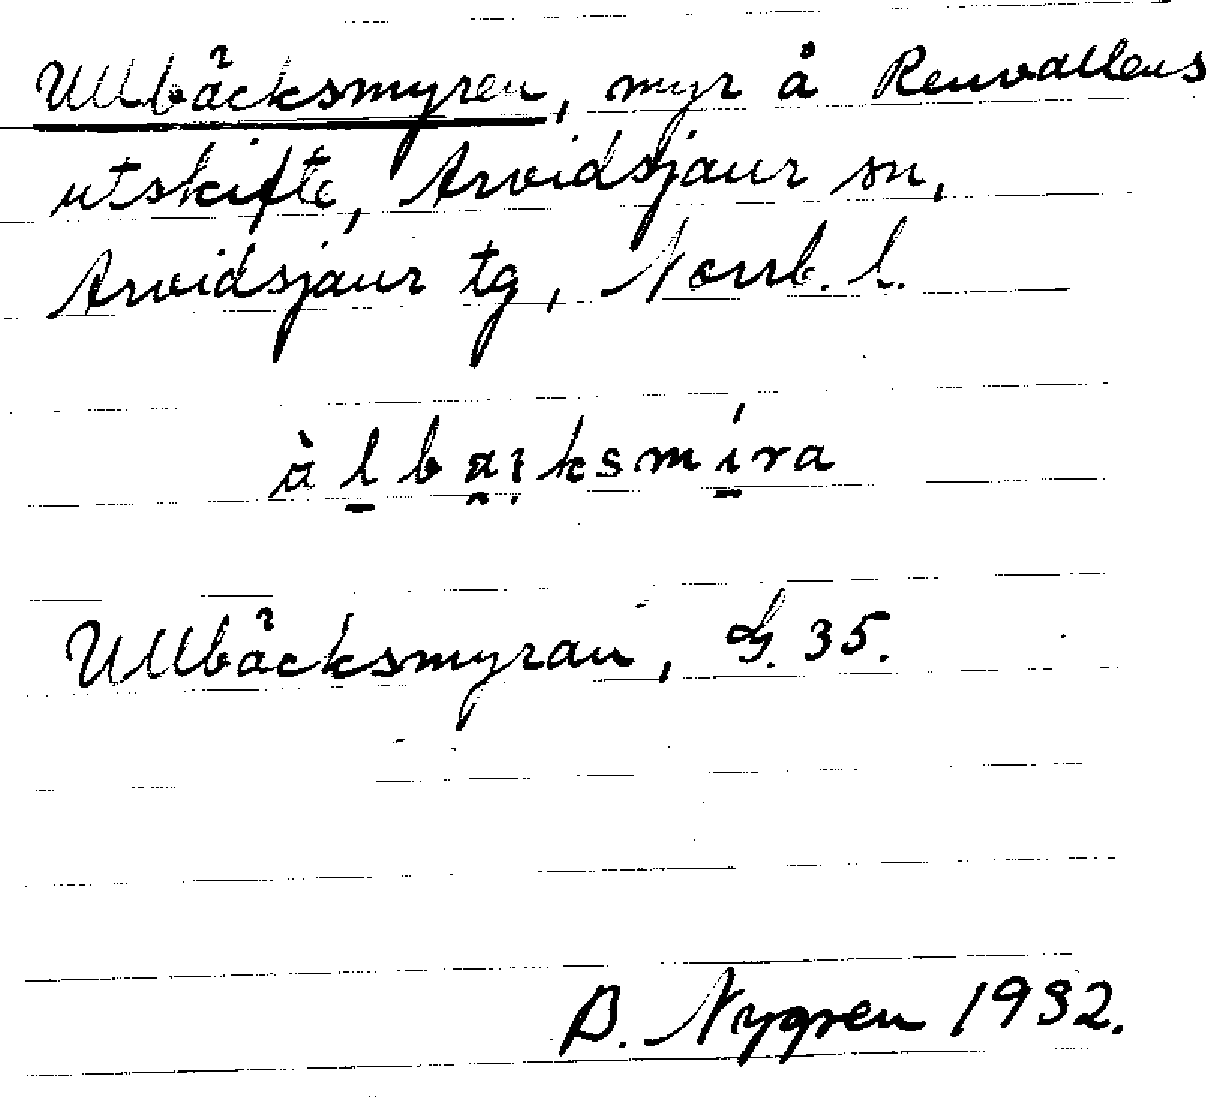 Ullbäcksmyren, myr å Renvallens
utskifte, Arvidsjaur sn,
Arvidsjaur tg, Norrb. l.
Ullbäcksmyran, G. 35.
B. Nygren 1932.